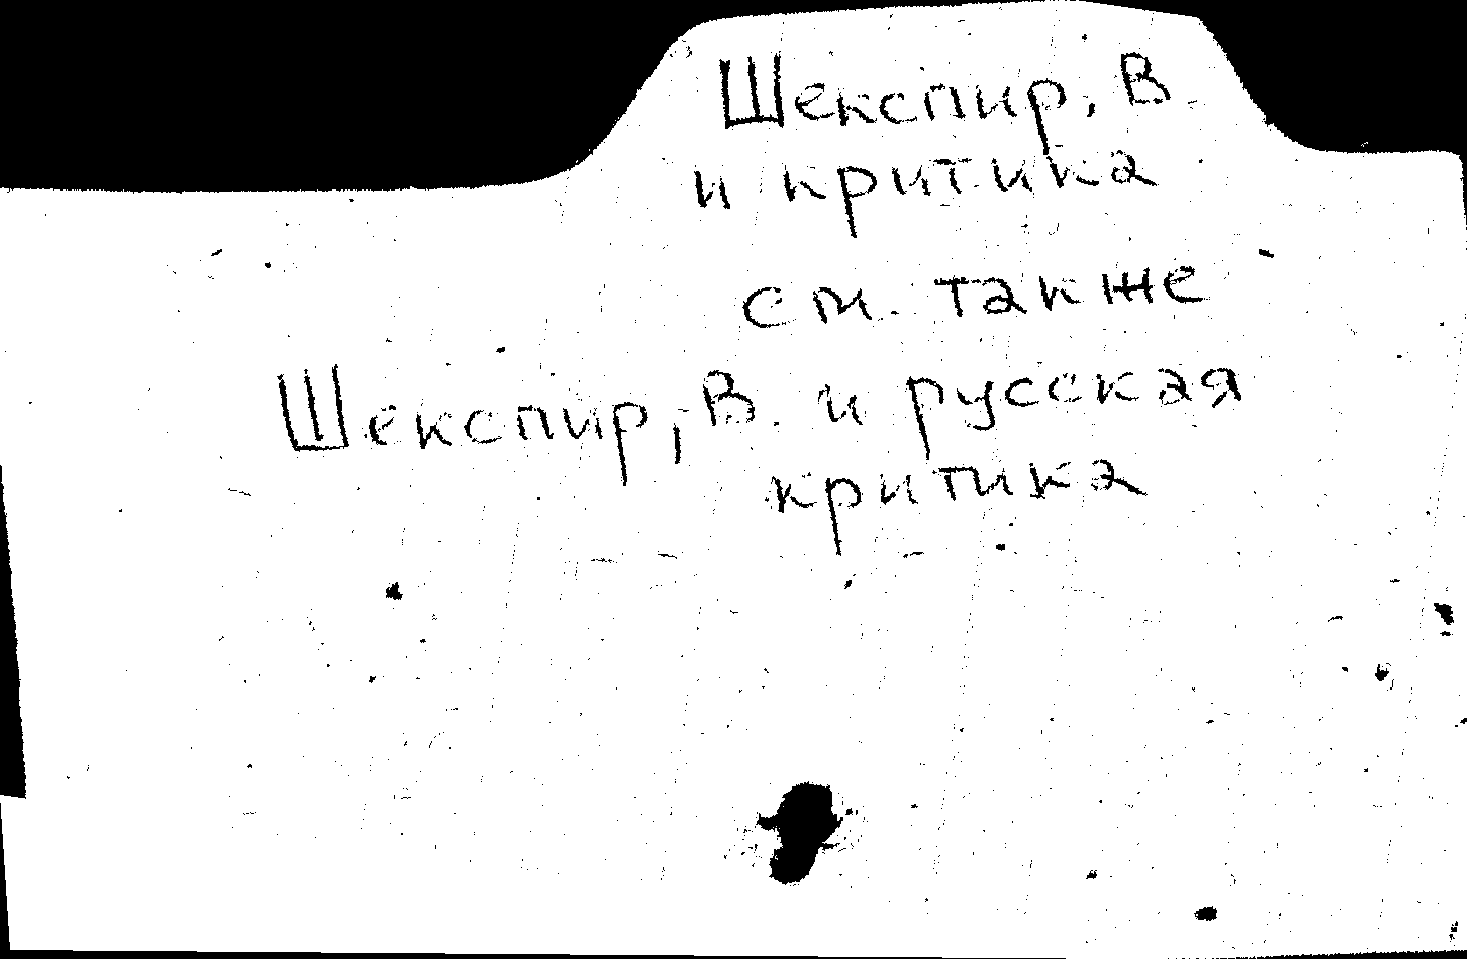 Шекспир, В.
и критика
см. также
Шекспир, В. и русская
критика